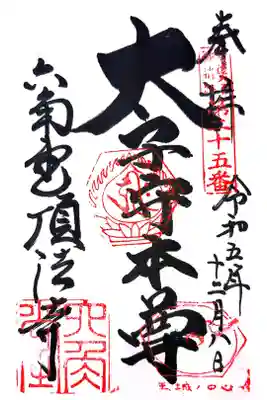 奉拝
十五番
令和五年
十二月八日
太子守本尊
六角堂頂法寺